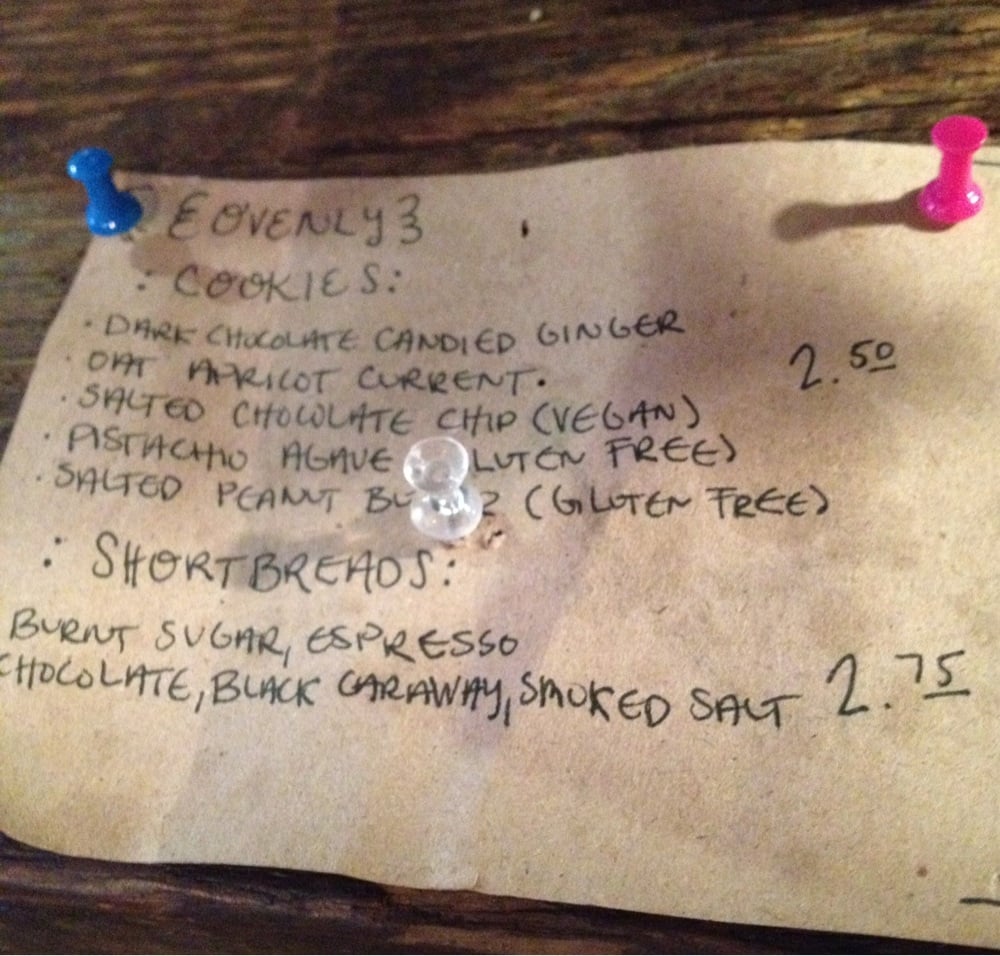 EOVENLY3
: COOKIES:
· DARK CHOCOLATE CANDIED GINGER
· OAT APRICOT CURRENT. 2.50
· SALTED CHOCOLATE CHIP (VEGAN)
· PISTACHIO AGAVE LUTEN FREE)
· SALTED PEANUT BU R (GLUTEN FREE)
: SHORTBREADS:
BURNT SUGAR, ESPRESSO
CHOCOLATE, BLACK CARAWAY, SMOKED SALT 2.75